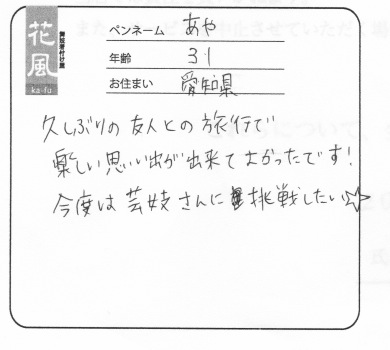 花風
舞妓着付け屋
ka-fu
ペンネーム あや
年齢 31
お住まい 愛知県
久しぶりの友人との旅行で
楽しい思い出が出来てよかったです!
今度は芸妓さんに挑戦したい☆